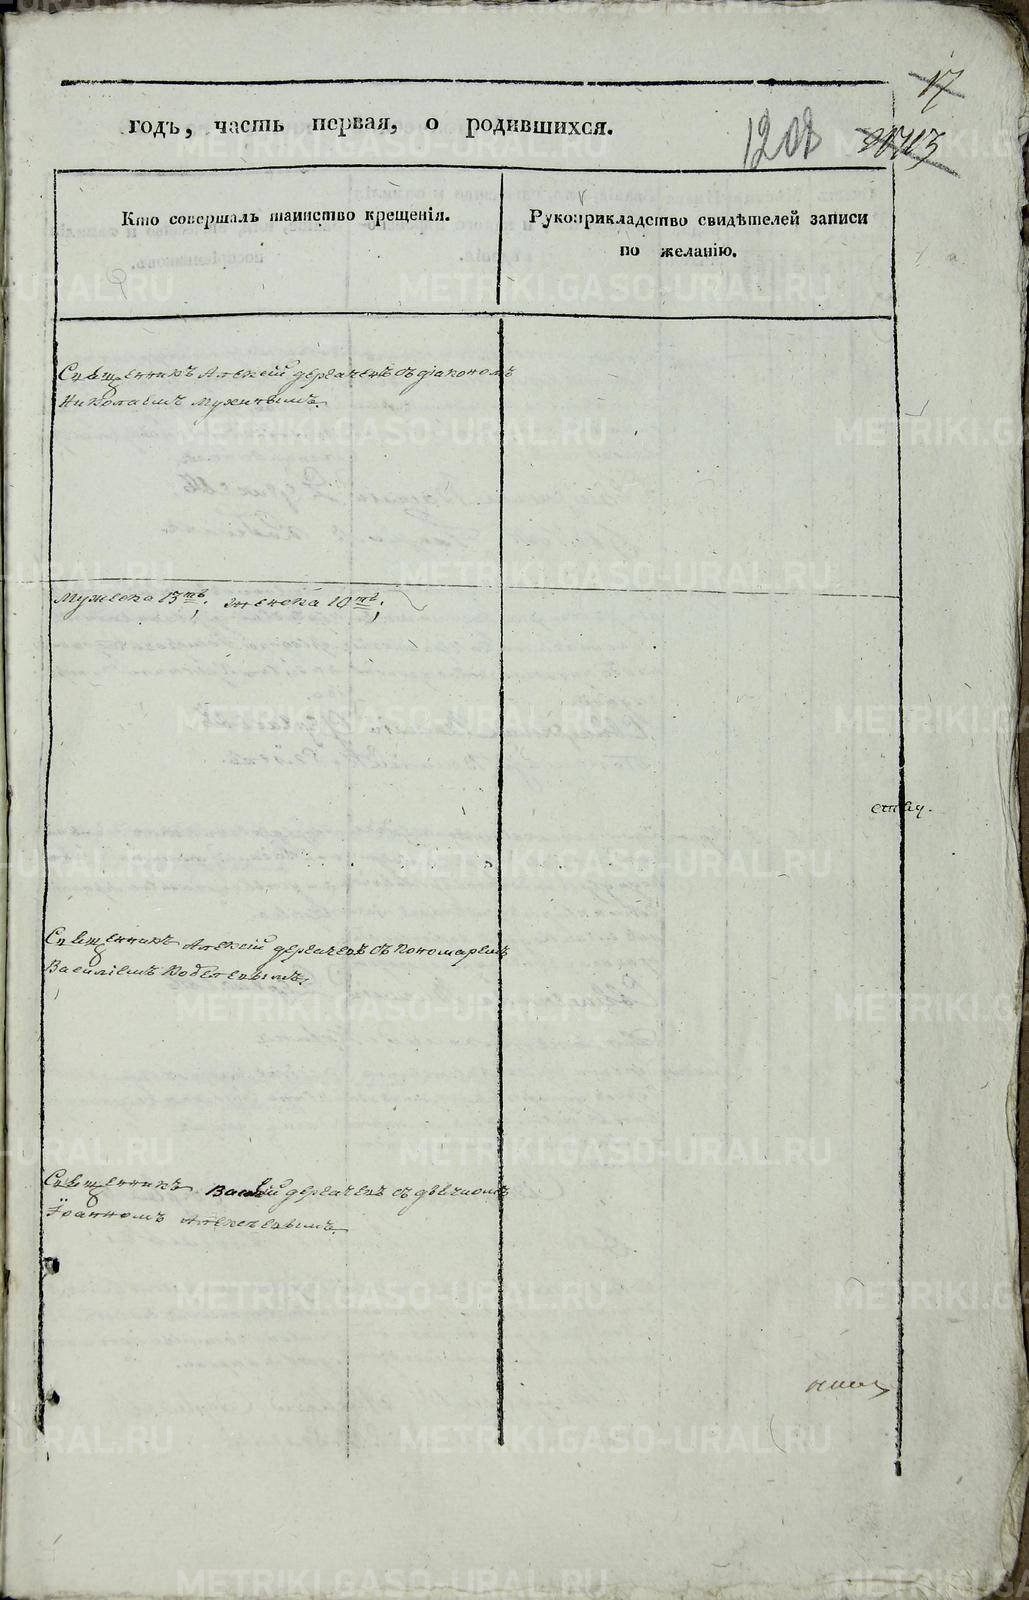 17
годъ, часть первая, о родившихся.
1208
Кто совершалъ таинство крещенія.
Рукоприкладство свидѣтелей записи
по желанію.
Священникъ Алексій Дергачевъ съ діакономъ
Николаемъ Мухинымъ.
Мужеска 13ть, женска 10ть,
Священникъ Алексій Дергачевъ съ пономаремъ
Василіемъ
Священникъ Василій Дергачевъ съ дьячкомъ
Іоанномъ Алексѣевымъ.
METRIKI.GASO-URAL.RU